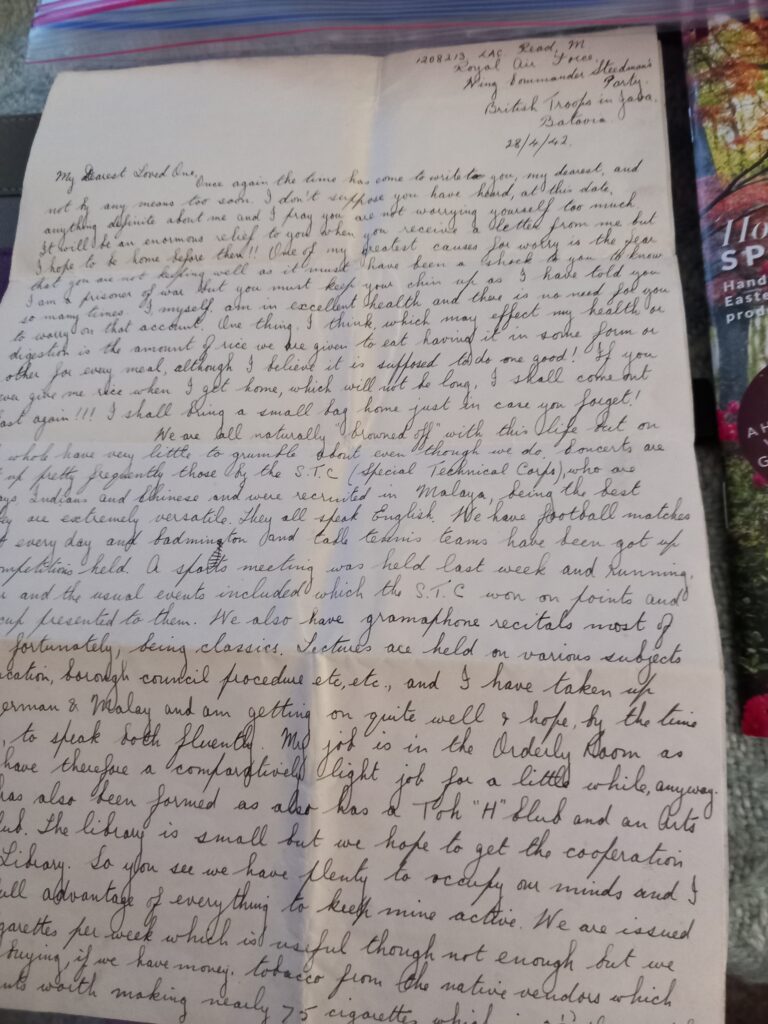 1208213 LAC. Read, M
Royal Air Force.
Wing Commander Steedman's
Party.
British Troops in Java.
Batavia
28/4/42.
My Dearest Loved One,
Once again the time has come to write to you, my dearest, and
not by any means too soon. I don't suppose you have heard, at this date,
anything definite about me and I pray you are not worrying yourself too much
It will be an enormous relief to you when you receive a letter from me but
I hope to be home before then!! One of my greatest causes for worry is the fear
that you are not keeping well as it must have been a shock to you to know
I am a prisoner of war but you must keep your chin up as I have told you
so many times. I myself am in excellent health and there is no need for you
to worry on that account. One thing, I think, which may effect my health or
digestion is the amount of rice we are given to eat having it in some form or
other for every meal, although I believe it is supposed to do one good! If you
ever give me rice when I get home, which will not be long, I shall come out
East again!!! I shall bring a small bag home just in case you forget!
We are all naturally "browned off" with this life but on
whole have very little to grumble about even though we do. Concerts are
up pretty frequently those by the S.T.C (Special Technical Corps), who are
Indians and Chinese and were recruited in Malaya, being the best
are extremely versatile. They all speak English. We have football matches
every day and badmington and table tennis teams have been got up
held. A sports meeting was held last week and running,
and the usual events included which the S.T.C won on points and
cup presented to them. We also have gramaphone recitals most of
fortunately, being classics. Lectures are held on various subjects
borough council procedure etc, etc., and I have taken up
German & Malay and am getting on quite well & hope, by the time
to speak both fluently. My job is in the Orderly Room as
have therefore a comparatively light job for a little while, anyway.
has also been formed as also has a Toh "H" Club and an Arts
The library is small but we hope to get the cooperation
Library. So you see we have plenty to occupy our minds and I
full advantage of everything to keep mine active. We are issued
cigarettes per week which is useful though not enough but we
buying, if we have money, tobacco from the native vendors which
worth making nearly 75 cigarettes which
SP
Hand
Easte
prod
A H
G